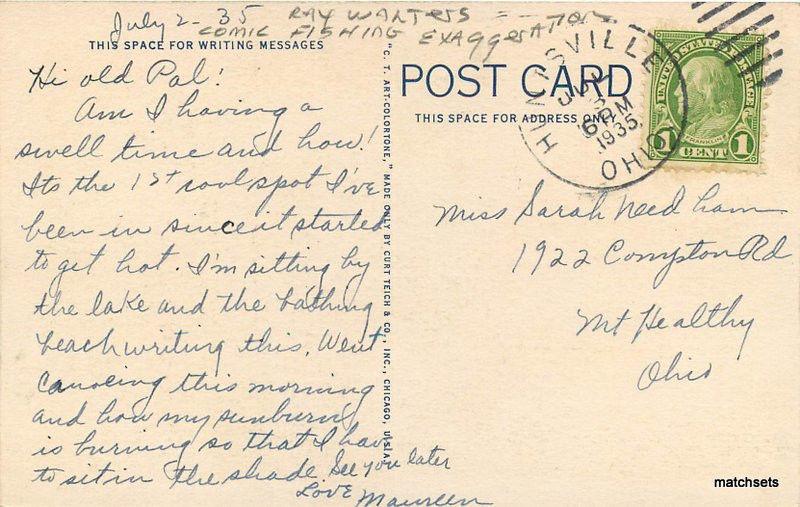 July 2-35 RAY WALTERS
COMIC FISHING EXAGGERATION
THIS SPACE FOR WRITING MESSAGES
Hi old Pal!
Am I having a
swell time and how!
Its the 1st cool spot I've
been in since it started
to get hot. I'm sitting by
the lake and the bathing
beach writing this. Went
canoeing this morning
and how my sunburn
is burning so that I have
to sit in the shade. See you later
Love Maureen
"C. T. ART-COLORTONE," MADE ONLY BY CURT TEICH & CO., INC., CHICAGO, U.S.A.
POST CARD
THIS SPACE FOR ADDRESS ONLY
OHIO
6 PM
1935
UNITED STATES POSTAGE
FRANKLIN
1 CENT 1
Miss Sarah Needham
1922 Compton Rd
Mt Healthy
Ohio
matchsets